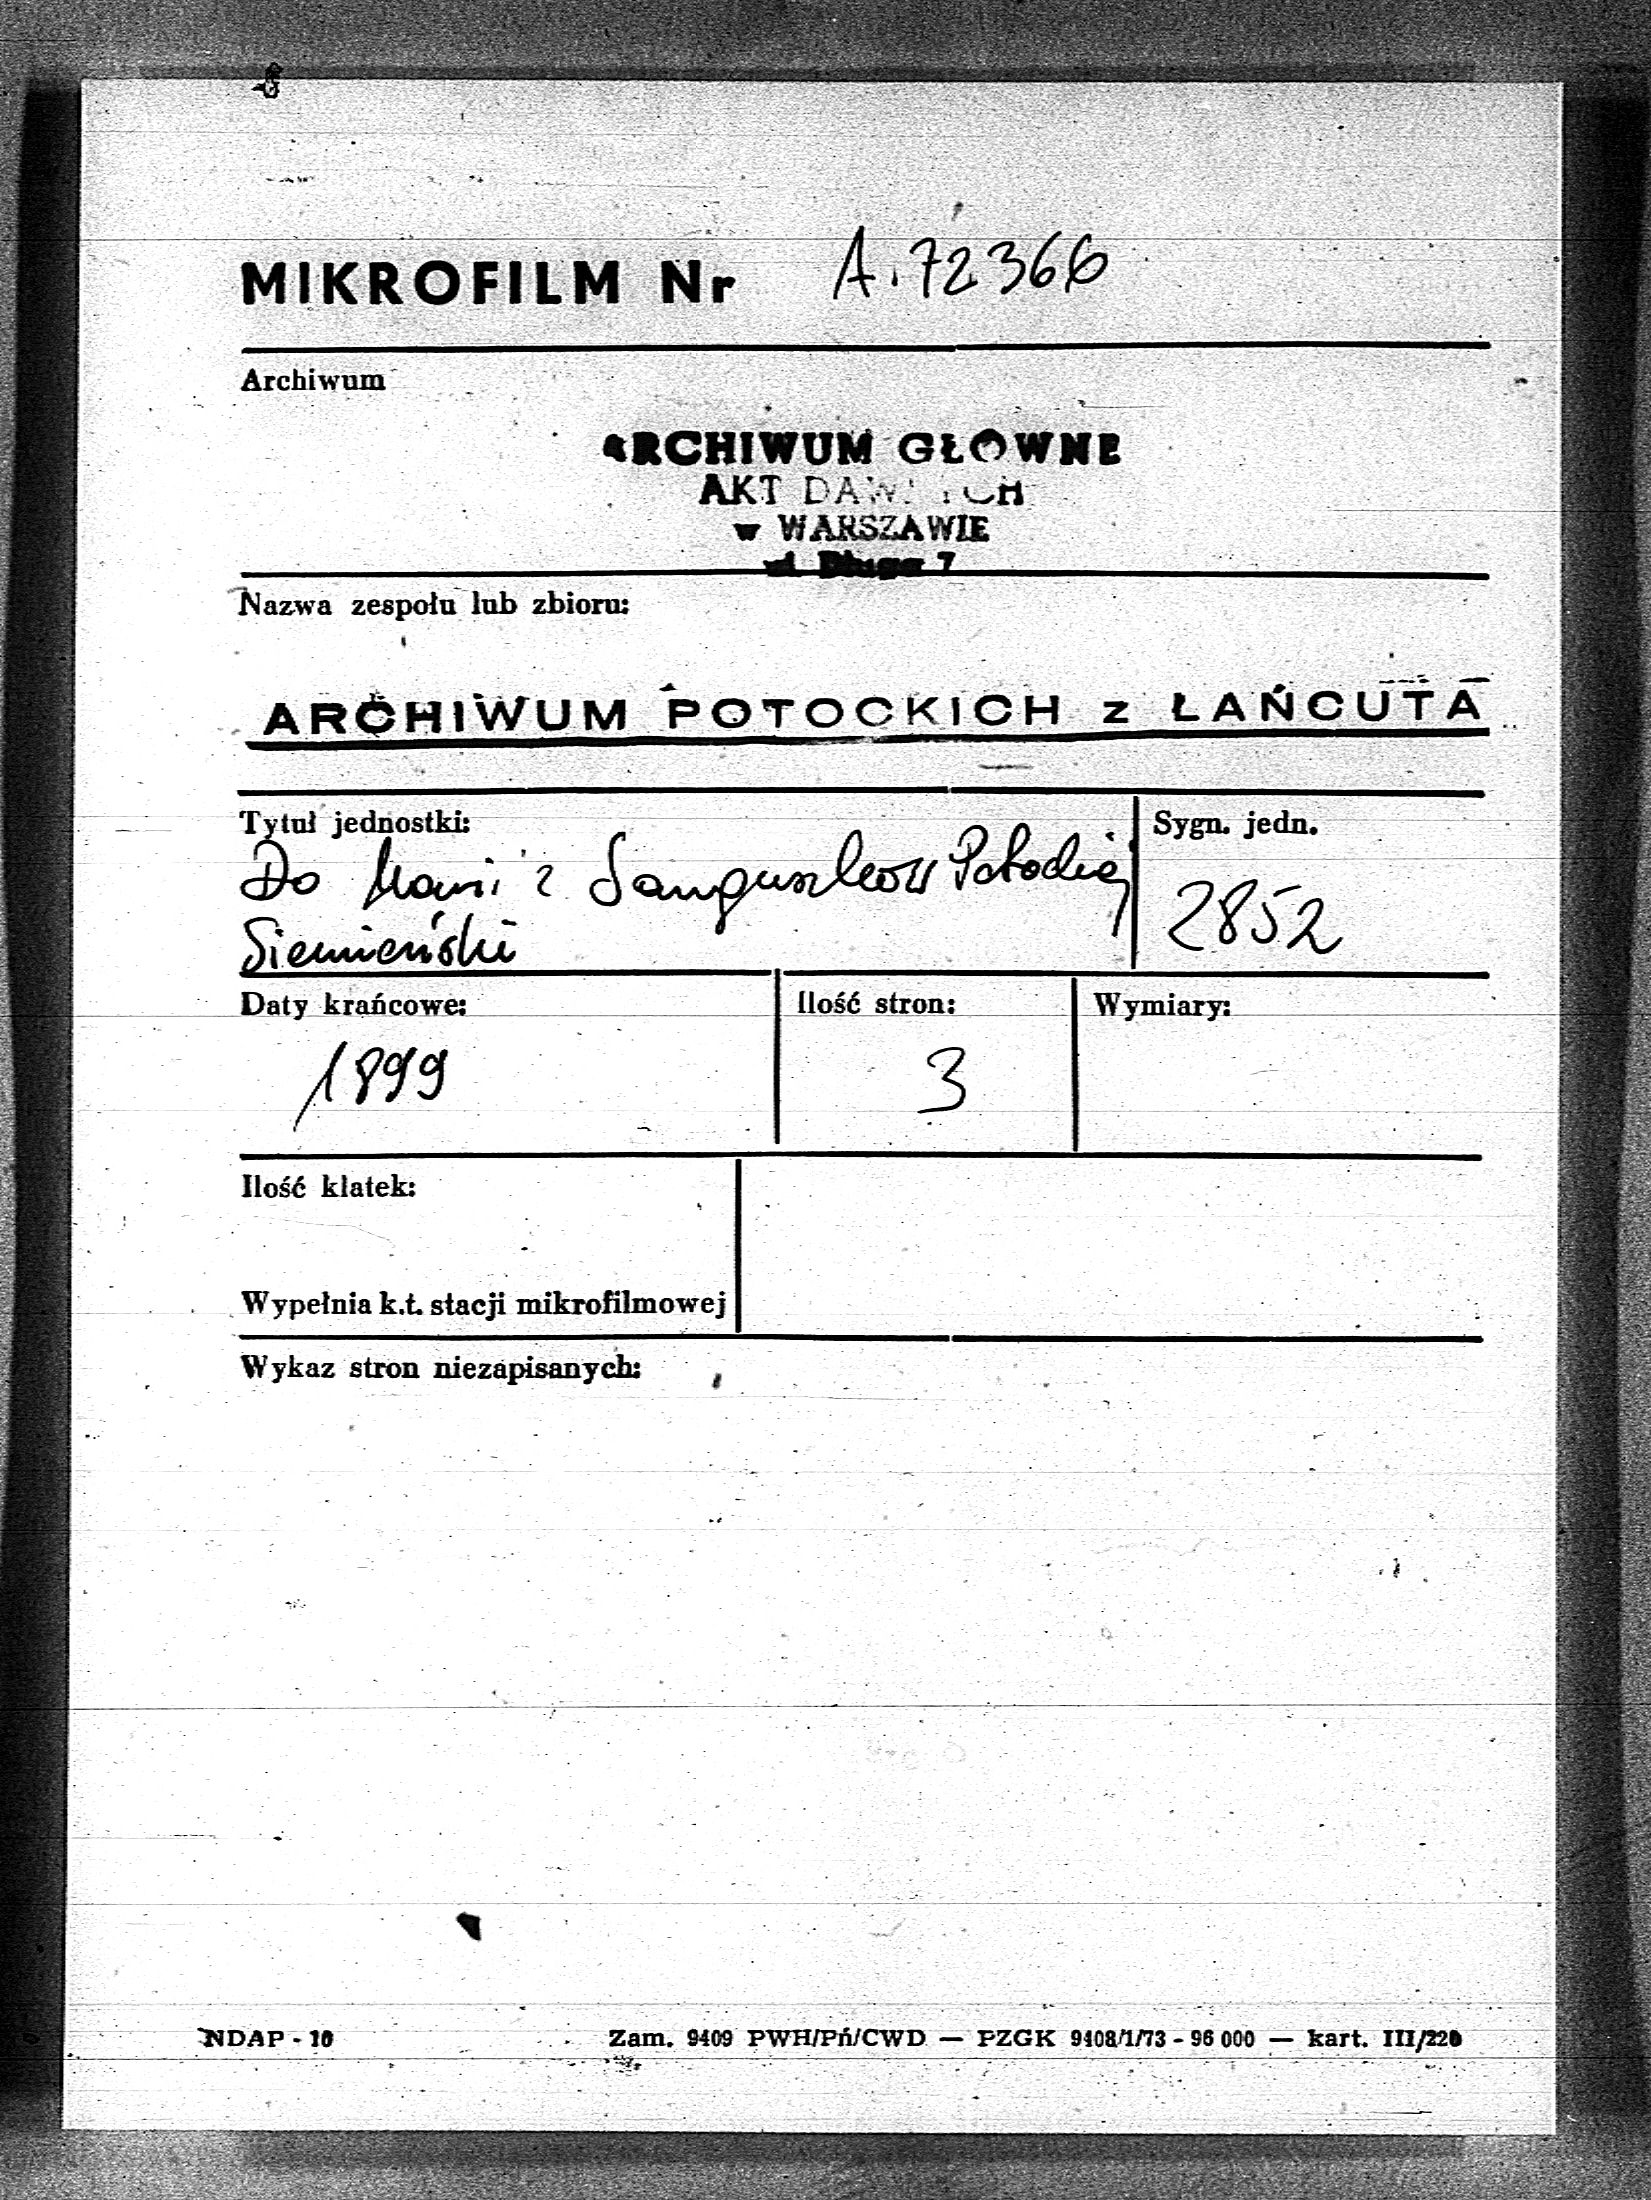 MIKROFILM Nr A.72366
Archiwum
ARCHIWUM GŁÓWNE
AKT DAWNYCH
w WARSZAWIE
ul. Długa 7
Nazwa zespołu lub zbioru:
ARCHIWUM POTOCKICH z ŁAŃCUTA
Tytuł jednostki:
Sygn. jedn.
Do Marii z Sanguszków Potockiej
Siemieński
2852
Daty krańcowe:
Ilość stron:
Wymiary:
1899
3
Ilość klatek:
Wypełnia k.t. stacji mikrofilmowej
Wykaz stron niezapisanych:
NDAP - 10
Zam. 9409 PWH/Pń/CWD — PZGK 9408/1/73 - 96 000 — kart. III/220